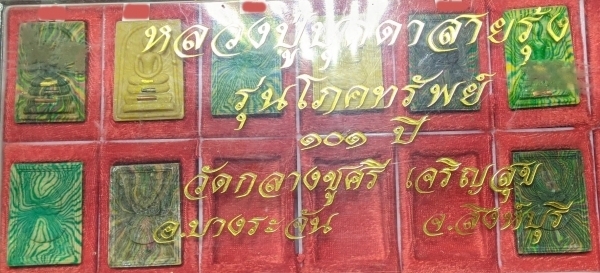 หลวงปู่บุดดาสายรุ้ง
รุ่นโภคทรัพย์
๑๐๑ ปี
วัดกลางชูศรี เจริญสุข
อ.บางระจัน จ.สิงห์บุรี